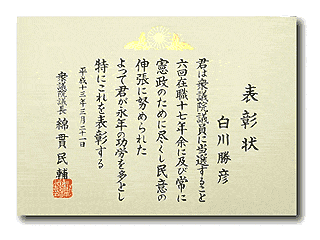 表彰状
白川勝彦
君は衆議院議員に当選すること
六回在職十七年余に及び常に
憲政のために尽くし民意の
伸張に努められた
よって君が永年の功労を多とし
特にこれを表彰する
平成十三年三月二十一日
衆議院議長 綿貫民輔